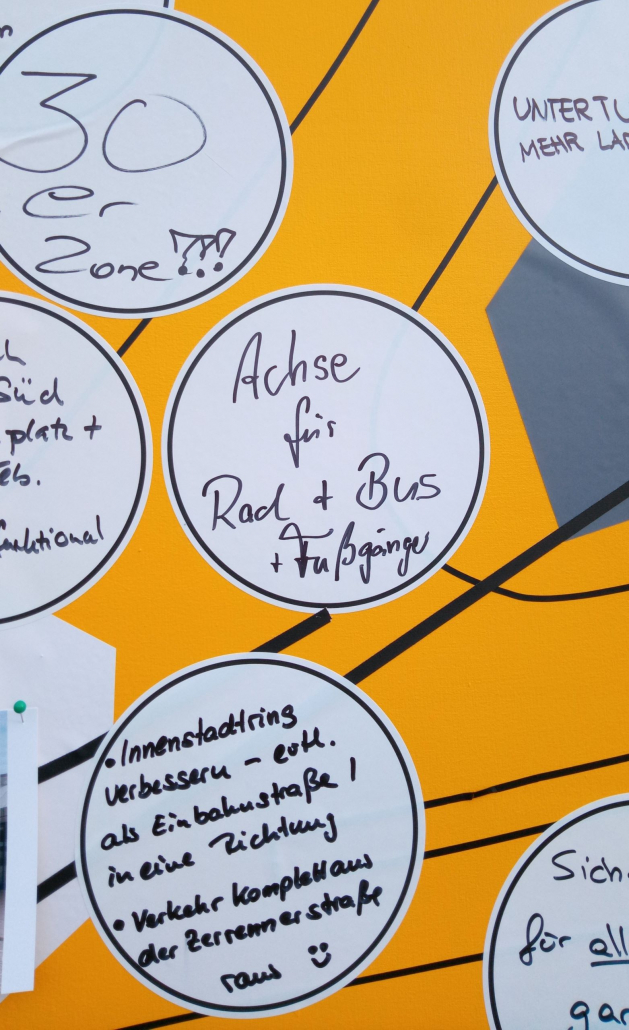 30
er
Zone???
UNTERTU
MEHR LA
Süd
platz +
funktional
Achse
für
Rad + Bus
+ Fußgänger
• Innenstadtring
verbessern - evtl.
als Einbahnstraße /
in eine Richtung
• Verkehr komplett aus
der Zerrennerstraße
raus
Sich
für all
gar